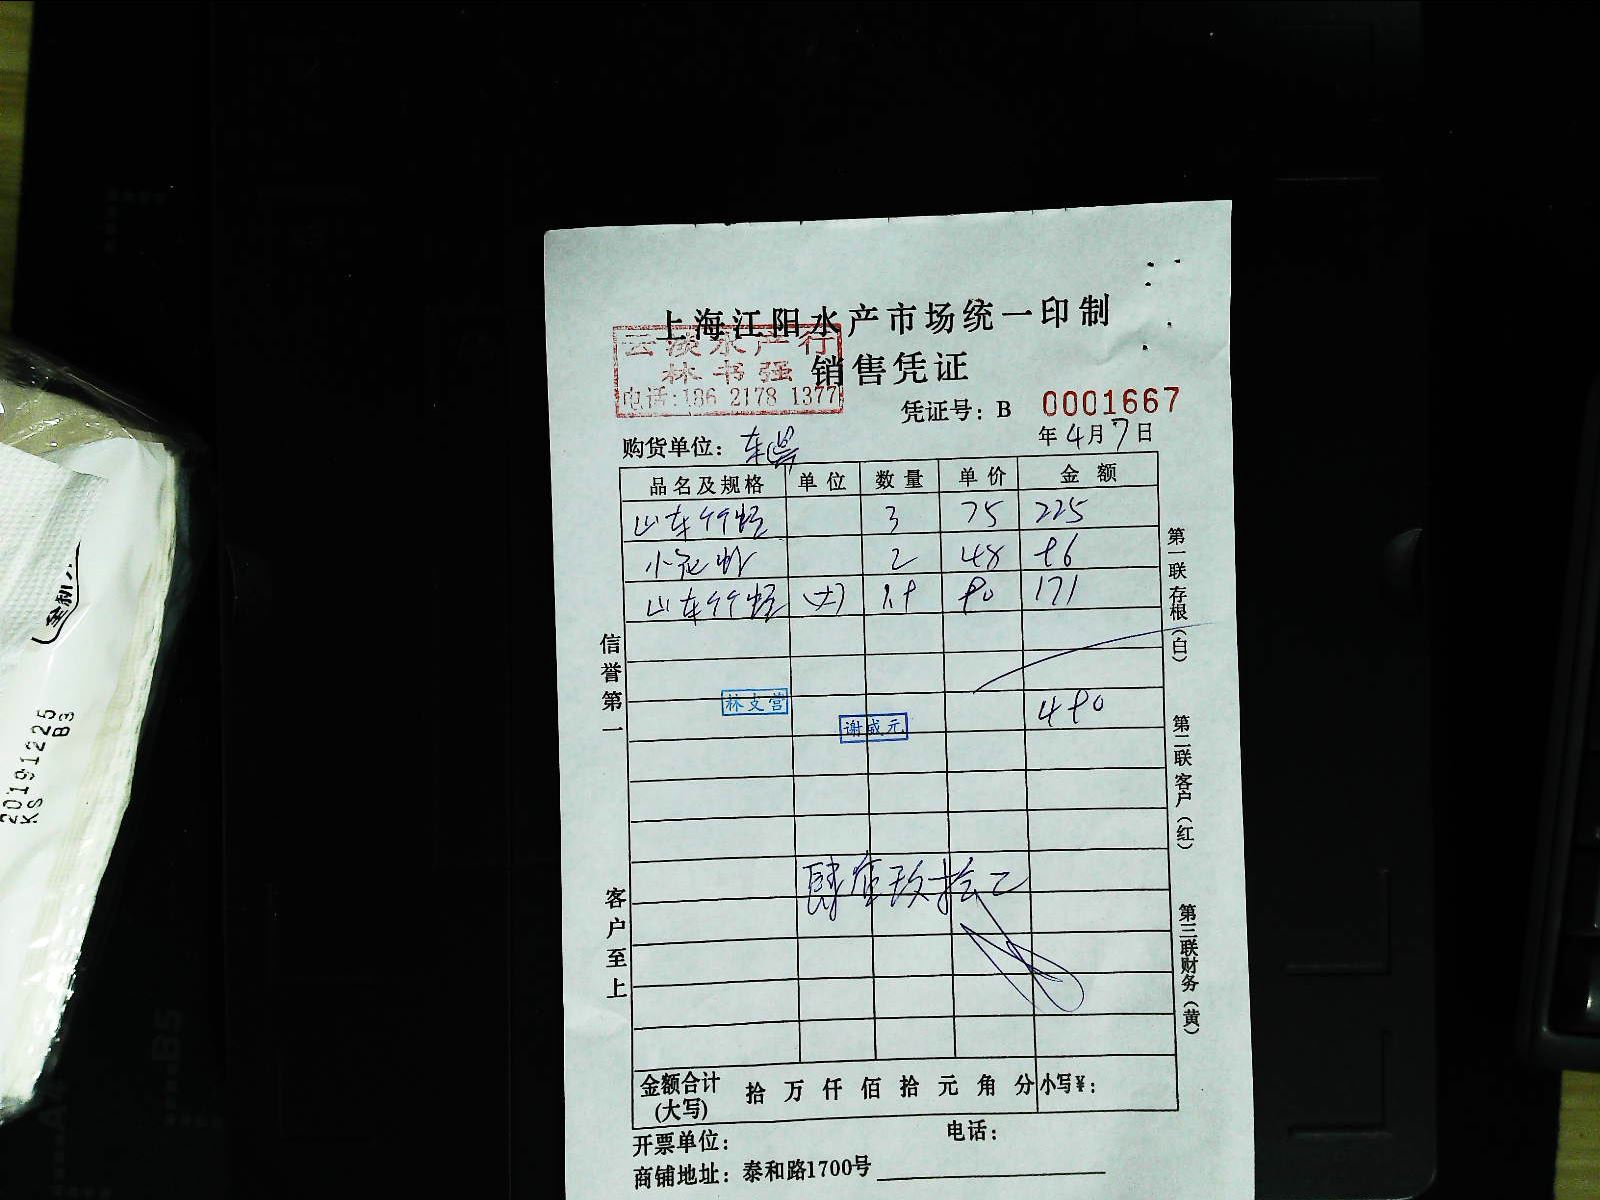 上海江阳水产市场统一印制
云淡水产行
林书强
电话:186 2178 1377
销售凭证
凭证号：B 0001667
购货单位：
年4月7日
品名及规格 单位 数量 单价 金额
山东竹蛏 3 75 225
小花虾 2 48 96
山东竹蛏 (大) 1.9 90 171
490
林支营
谢咸元
肆佰玖拾元
金额合计(大写) 拾 万 仟 佰 拾 元 角 分 小写¥：
开票单位： 电话：
商铺地址：泰和路1700号
信誉第一
客户至上
第一联存根（白）
第二联客户（红）
第三联财务（黄）
20191225
KS B3